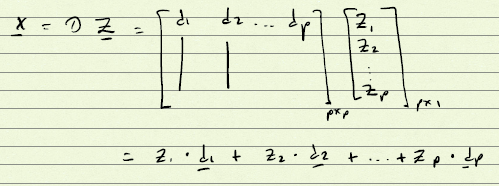 x = D z = [ d1 d2 ... dp ]pxp [ z1 z2 ⋮ zp ]px1
= z1 · d1 + z2 · d2 + ... + zp · dp